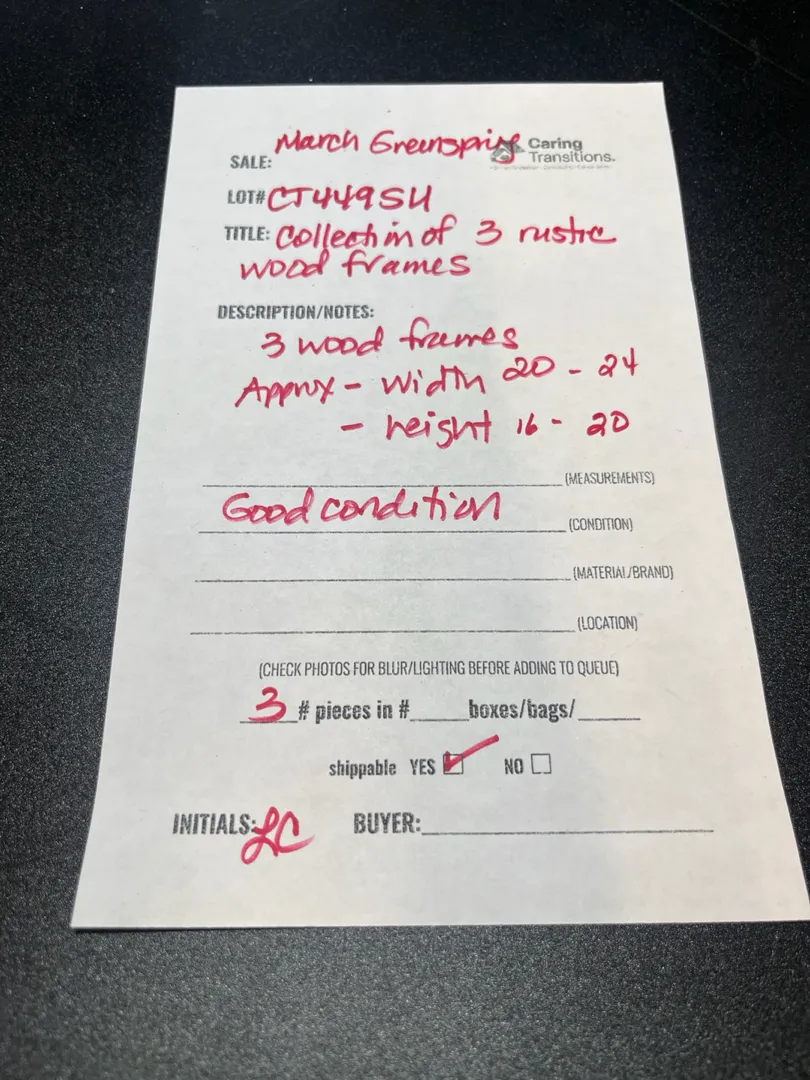 March Greenspring
Caring
Transitions.
SALE:
LOT# CT449SH
TITLE: Collection of 3 rustic
wood frames
DESCRIPTION/NOTES:
3 wood frames
Approx - Width 20 - 24
- height 16 - 20
(MEASUREMENTS)
Good condition
(CONDITION)
(MATERIAL/BRAND)
(LOCATION)
(CHECK PHOTOS FOR BLUR/LIGHTING BEFORE ADDING TO QUEUE)
3 # pieces in #_____boxes/bags/_____
shippable YES ☑ NO ☐
INITIALS: LC BUYER: